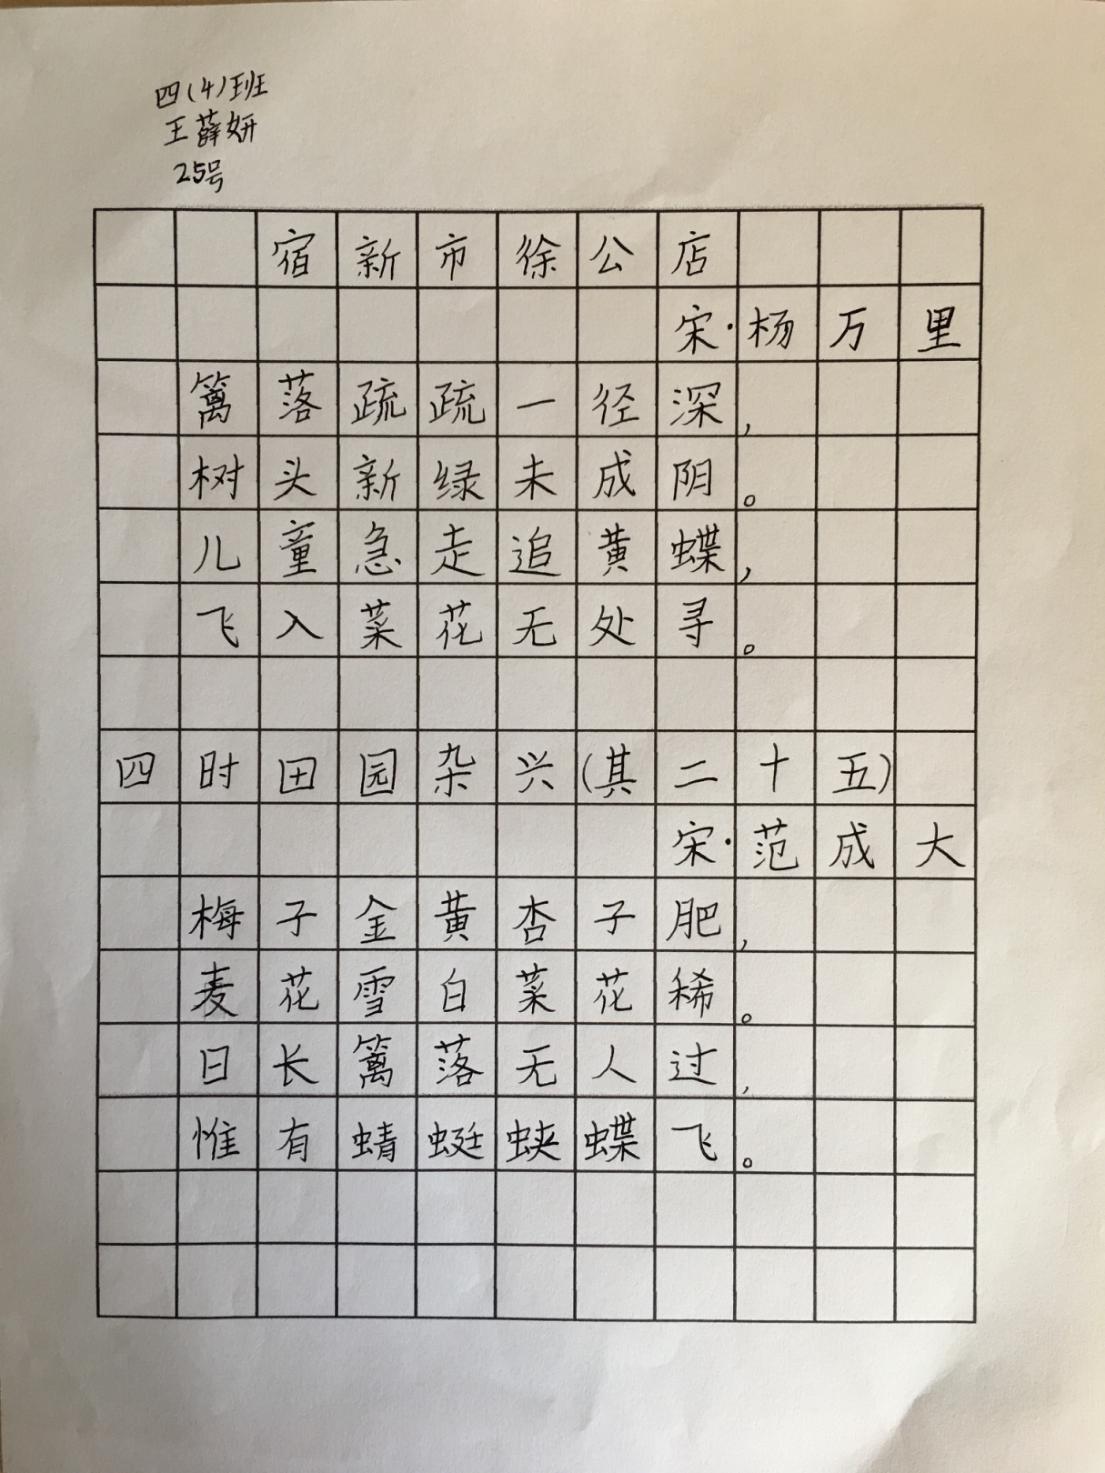 四(4)班
王薛妍
25号
宿新市徐公店
宋·杨万里
篱落疏疏一径深，
树头新绿未成阴。
儿童急走追黄蝶，
飞入菜花无处寻。
四时田园杂兴(其二十五)
宋·范成大
梅子金黄杏子肥，
麦花雪白菜花稀。
日长篱落无人过，
惟有蜻蜓蛱蝶飞。